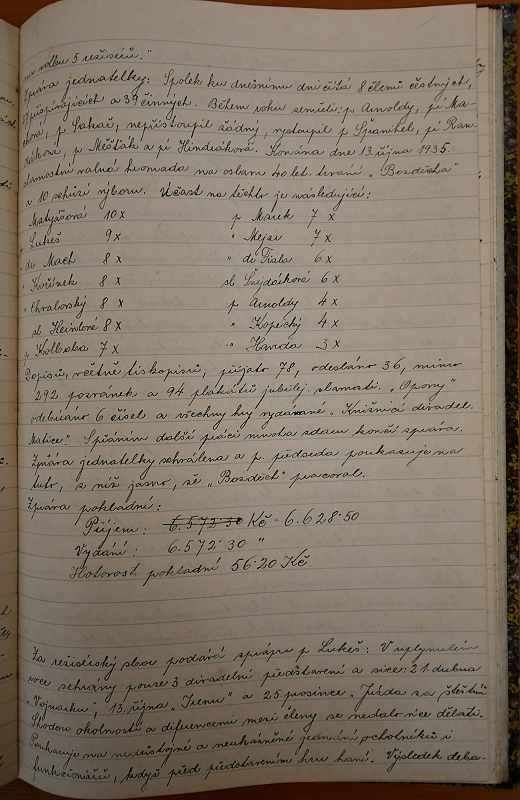 na volbu 5 režisérů."
Zpráva jednatelky: Spolek ku dnešnímu dni čítá 8 členů čestných,
27 přispívajících a 39 činných. Během roku zemřeli: p Arnoldy, pí Ma-
chová, p Sakař, nepřistoupil žádný, vystoupil p Španihel, pí Rau
, p Měšťák a pí Hindráková. Konána dne 13. října 1935
slavnostní valná hromada na oslavu 40 let. trvání „Bozděcha"
a 10 schůzí výboru. Účast na těchto je následující:
Matyášová 10 x p Marek 7 x
p Lukeš 9 x " Mejsr 7 x
" dr Mach 8 x " dr Fiala 6 x
" Kořínek 8 x sl Šnejdárková 6 x
" Chraborský 8 x p Arnoldy 4 x
sl Heinlové 8 x " Kopecký 4 x
p Kolbaba 7 x " Havrda 3 x
Dopisů, včetně tiskopisů, přijato 78, odesláno 36, mimo
292 pozvánek a 94 plakátů jubilej. slavnosti. „Opony"
odebíráno 6 čísel a všechny hry vydávané „Knižnicí divadel.
Matice". Přáním další práci mnoho zdaru končí zpráva.
Zpráva jednatelky schválena a p. předseda poukazuje na
tuto, z níž jasno, že „Bozděch" pracoval.
Zpráva pokladní:
Příjem: 6.572·30 Kč - 6.628·50
Vydání: 6.572·30 "
Hotovost pokladní 56·20 Kč.
Za režisérský sbor podává zprávu p Lukeš: V uplynulém
roce sehrány pouze 3 divadelní představení a sice: 21 dubna
„Vojnarku", 13. října „Irenu" a 25. prosince „Jízda za štěstím".
Shodou okolností a diferencemi mezi členy se nedalo více dělati.
Poukazuje na nedůstojné a neukázněné jednání ochotníků i
funkcionářů, když před představením hru haní. Výsledek deba-